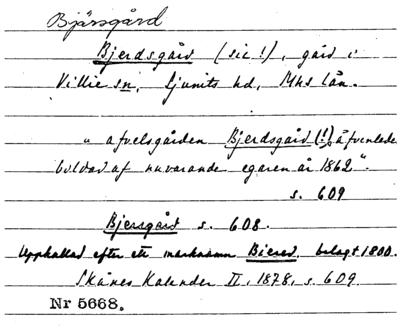 Bjärsgård
Bjerdsgård (sic!), gård i
Villie sn, Ljunits hd, Mhs län.
"afvelsgården Bjerdsgård (!), äfvenledes
bildad af nuvarande egaren år 1862".
s. 609
Bjersgård s. 608.
Uppkallad efter ett marknamn Biered, belagt 1800.
Skånes Kalender II, 1878, s. 609.
Nr 5668.